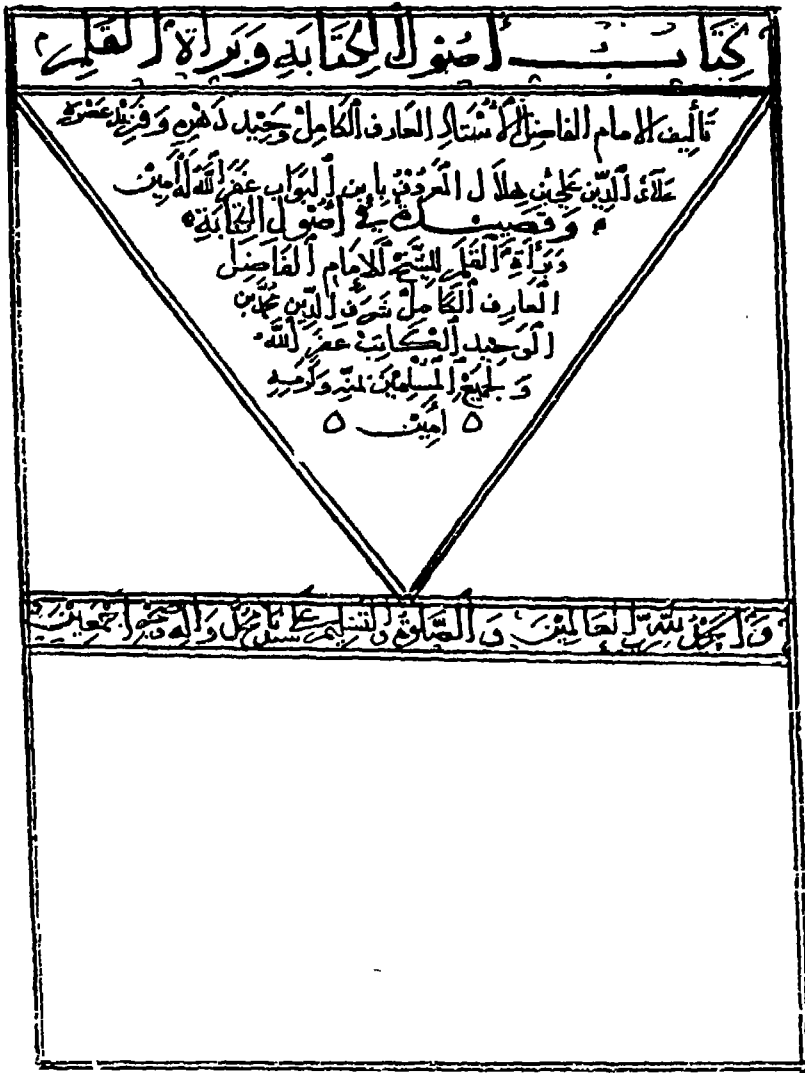 كتاب أصول الكتابة وبراة القلم
تأليف الامام الفاضل الأستاد العارف الكامل وحيد دهره وفريد عصره
علائ الدين علي بن هلال المعروف بابن البواب غفر الله له أمين
وقصيدة في أصول الكتابة
وبرأة القلم للشيخ الامام الفاضل
العارف الكامل شرف الدين محمد بن
الوحيد الكاتب غفر الله
ولجميع المسلمين بمنه وكرمه
أمين
والحمد لله رب العالمين والصلوة والتسليم على سيدنا محمد وآله وصحبه أجمعين